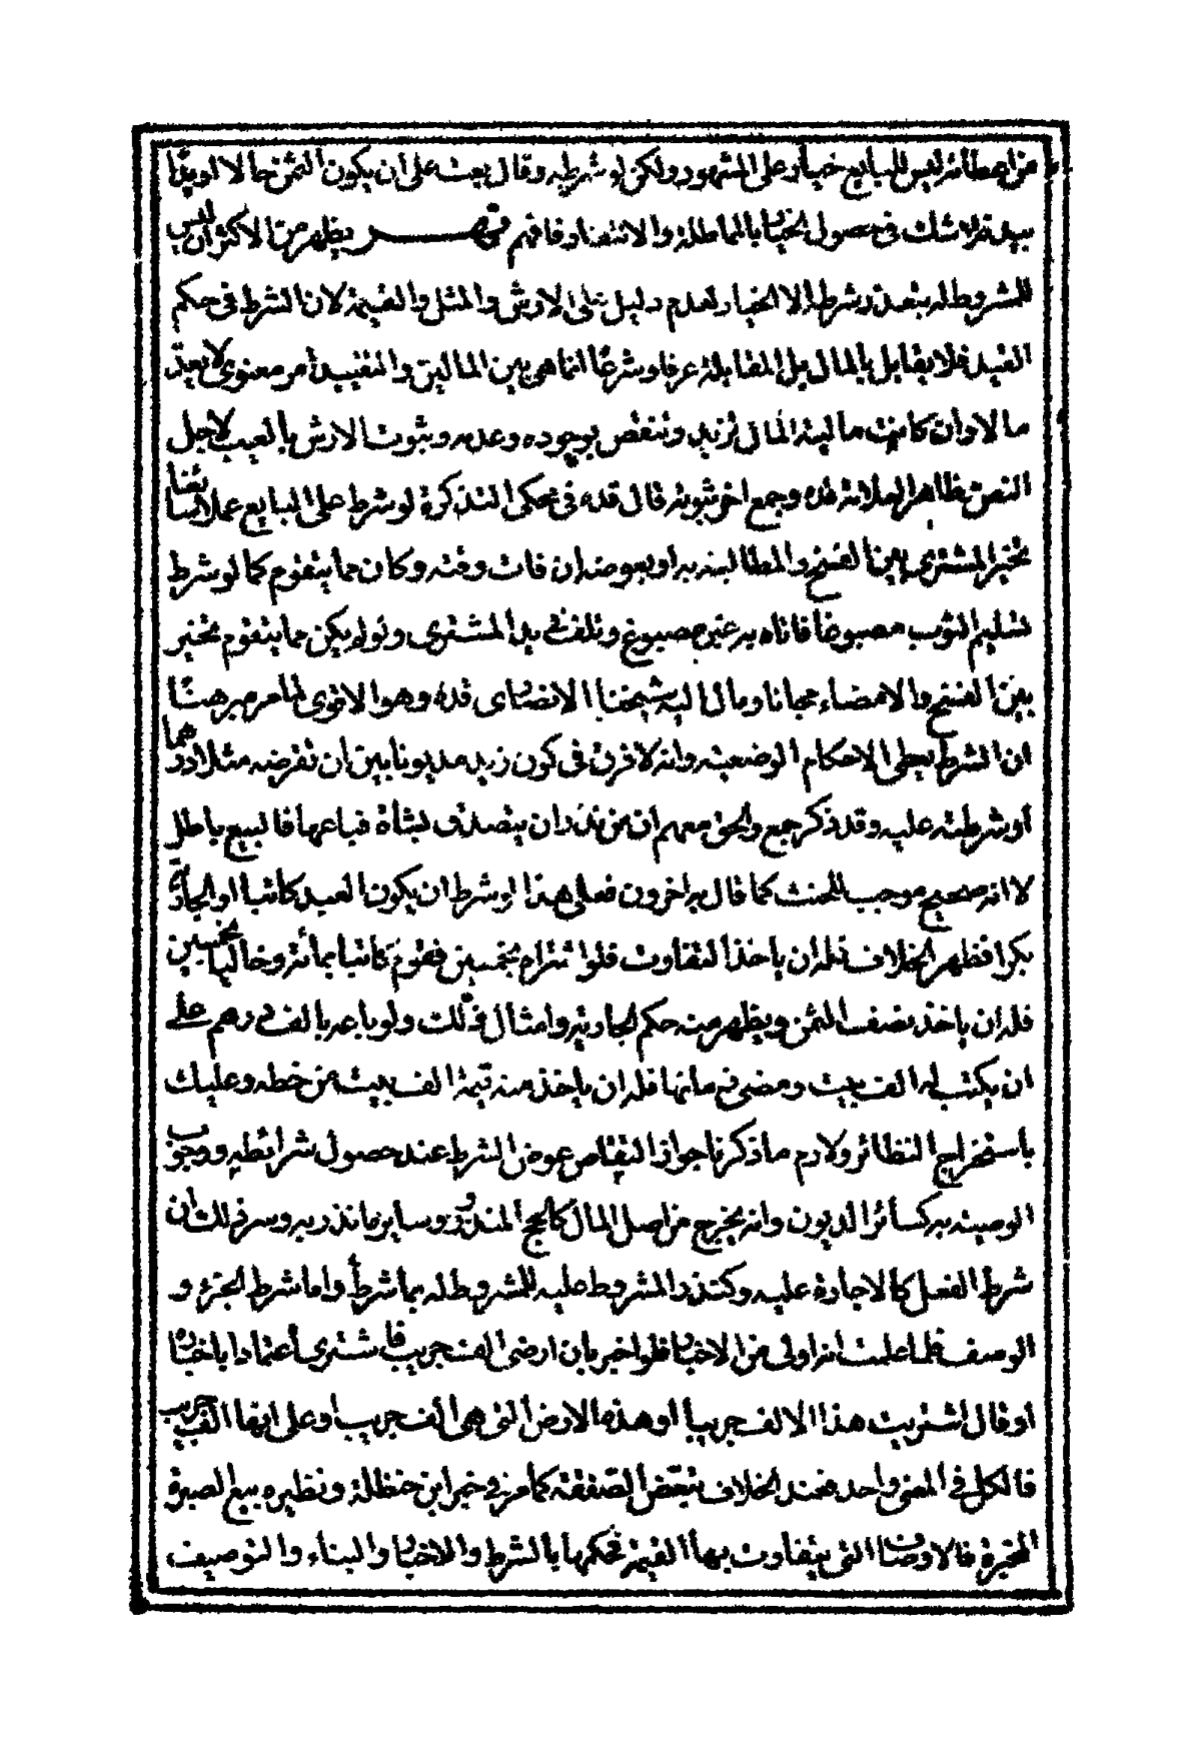 من اعطائه ليس للبايع خيار على المشهور ولكن لو شرطه وقال بعت على ان يكون الثمن حالا او يوما
بيد فلا شك في حصول الخيار بالمماطلة والانقضاء فافهم يظهر من الاكثر ان ليس
للمشروط له بتعذر شرطه الا الخيار لعدم دليل على الارش والمثل والقيمة لان الشرط في حكم
القيد فلا يقابل بالمال بل المقابلة عرفا وشرعا انما هي بين المالين والتقييد امر معنوي لا يعد
مالا وان كانت مالية المال تزيد وتنقص بوجوده وعدمه وثبوت الارش بالعيب لاجل
النص وظاهر العلامة قده وجمع اخر ثبوته قال قده في محكى التذكرة لو شرط على البايع عملا سائغا
تخير المشتري بين الفسخ والمطالبة به او بعوضه ان فات وقته وكان مما يتقوم كما لو شرط
تسليم الثوب مصبوغا فاتاه به غير مصبوغ وتلف في يد المشتري ولو لم يكن مما يتقوم تخير
بين الفسخ والامضاء مجانا ومال اليه شيخنا الانصاري قده وهو الاقوى لما مر مبرهنا
ان الشرط يعطى الاحكام الوضعية وانه لا فرق في كون زيد مديونا بين ان تقرضه مثلا درهما
او شرطته عليه وقد ذكر جمع والحق معهم ان من نذر ان يتصدق بشاة فباعها فالبيع باطل
لا انه صحيح موجب للحنث كما قال به اخرون فعلى هذا لو شرط ان يكون العبد كاتبا او الجارية
بكرا فظهر الخلاف فله ان ياخذ التفاوت فلو اشتراه بخمسين فقوم كاتبا بمائة وخاليا بخمسين
فله ان ياخذ نصف الثمن ويظهر منه حكم الجارية وامثال ذلك ولو باعه بالف درهم على
ان يكتب له الف بيت ومضى زمانها فله ان ياخذ منه قيمة الف بيت من خطه وعليك
باستخراج النظائر ولازم ما ذكرنا جواز التقاص عوض الشرط عند حصول شرائطه ووجوب
الوصية به كسائر الديون وانه يخرج من اصل المال كالحج المنذور وساير ما نذر به وسر ذلك ان
شرط الفعل كالاجارة عليه وكنذر المشروط عليه للمشروط له بما شرط واما شرط الجزء و
الوصف فلما علمت انه اولى من الاخبار فلو اخبر بان ارضى الف جريب فاشترى اعتمادا باخباره
او قال اشتريت هذا الالف جريبا او هذه الارض التي هي الف جريب او على انها الف جريب
فالكل في المعنى واحد فعند الخلاف تبعض الصفقة كما مر في خبر ابن حنظلة ونظيره بيع الصبرة
المخبرة فالاوصاف التي يتفاوت بها القيمة حكمها بالشرط والاخبار والبناء والتوصيف